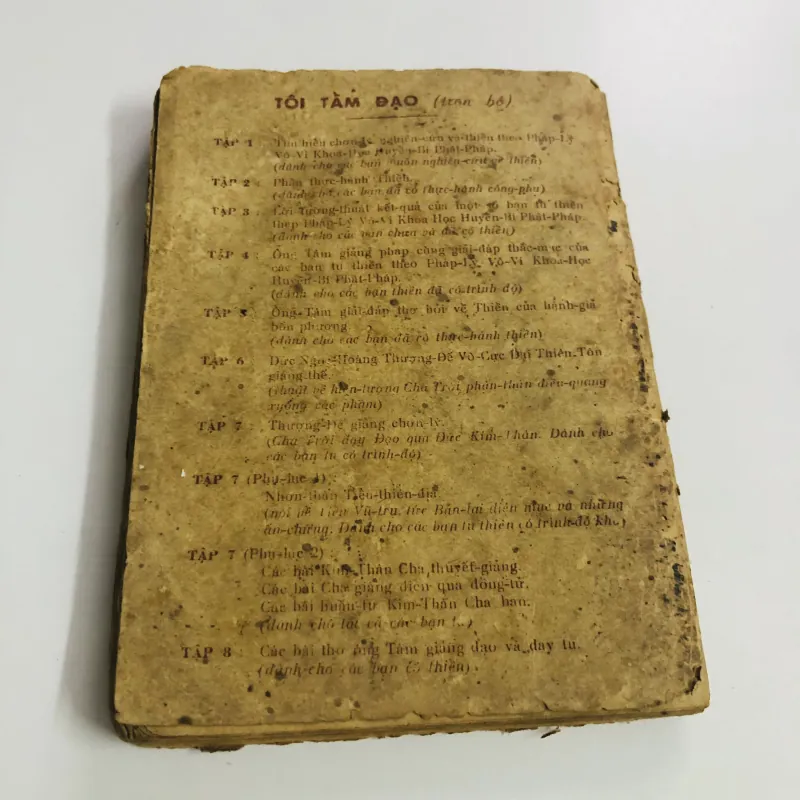 TÔI TẦM ĐẠO (trọn bộ)
TẬP 1 : Tìm hiểu chơn-lý nghiên-cứu và thiền theo Pháp-Lý
Vô-Vi Khoa-Học Huyền-Bí Phật-Pháp.
(dành cho các bạn muốn nghiên-cứu về thiền)
TẬP 2 : Phần thực-hành Thiền.
(dành cho các bạn đã có thực-hành công-phu)
TẬP 3 : Lời Tường-thuật kết-quả của một số bạn tu thiền
theo Pháp-Lý Vô-Vi Khoa Học Huyền-Bí Phật-Pháp.
(dành-cho các bạn chưa và đã có thiền)
TẬP 4 : Ông Tám giảng pháp cùng giải-đáp thắc-mắc của
các bạn tu thiền theo Pháp-Lý Vô-Vi Khoa-Học
Huyền-Bí Phật-Pháp.
(dành cho các bạn thiền đã có trình độ)
TẬP 5 : Ông Tám giải-đáp thơ hỏi về Thiền của hành-giả
bốn phương
(dành cho các bạn đã có thực-hành thiền)
TẬP 6 Đức Ngọc-Hoàng Thượng-Đế Vô-Cực Đại Thiên-Tôn
giáng-thế.
(thuật về hiện-tượng Cha Trời phân-thân điển-quang
xuống các phàm)
TẬP 7 Thượng-Đế giảng chơn-lý.
(Cha Trời dạy Đạo qua Đức Kim-Thân. Dành cho
các bạn tu có trình-độ)
TẬP 7 (Phụ-lục 1) :
Nhơn-thân Tiểu-thiên-địa.
(nói về Tiểu Vũ-trụ, tức Bản-lai diện mục và những
ấn-chứng. Dành cho các bạn tu thiền có trình-độ khá)
TẬP 7 (Phụ-lục 2) :
Các bài Kim-Thân Cha thuyết-giảng.
Các bài Cha giảng điển qua đồng-tử.
Các bài huấn-từ Kim-Thân Cha ban.
(dành cho tất cả các bạn tu)
TẬP 8 : Các bài thơ ông Tám giảng đạo và dạy tu.
(dành-cho các bạn có thiền)